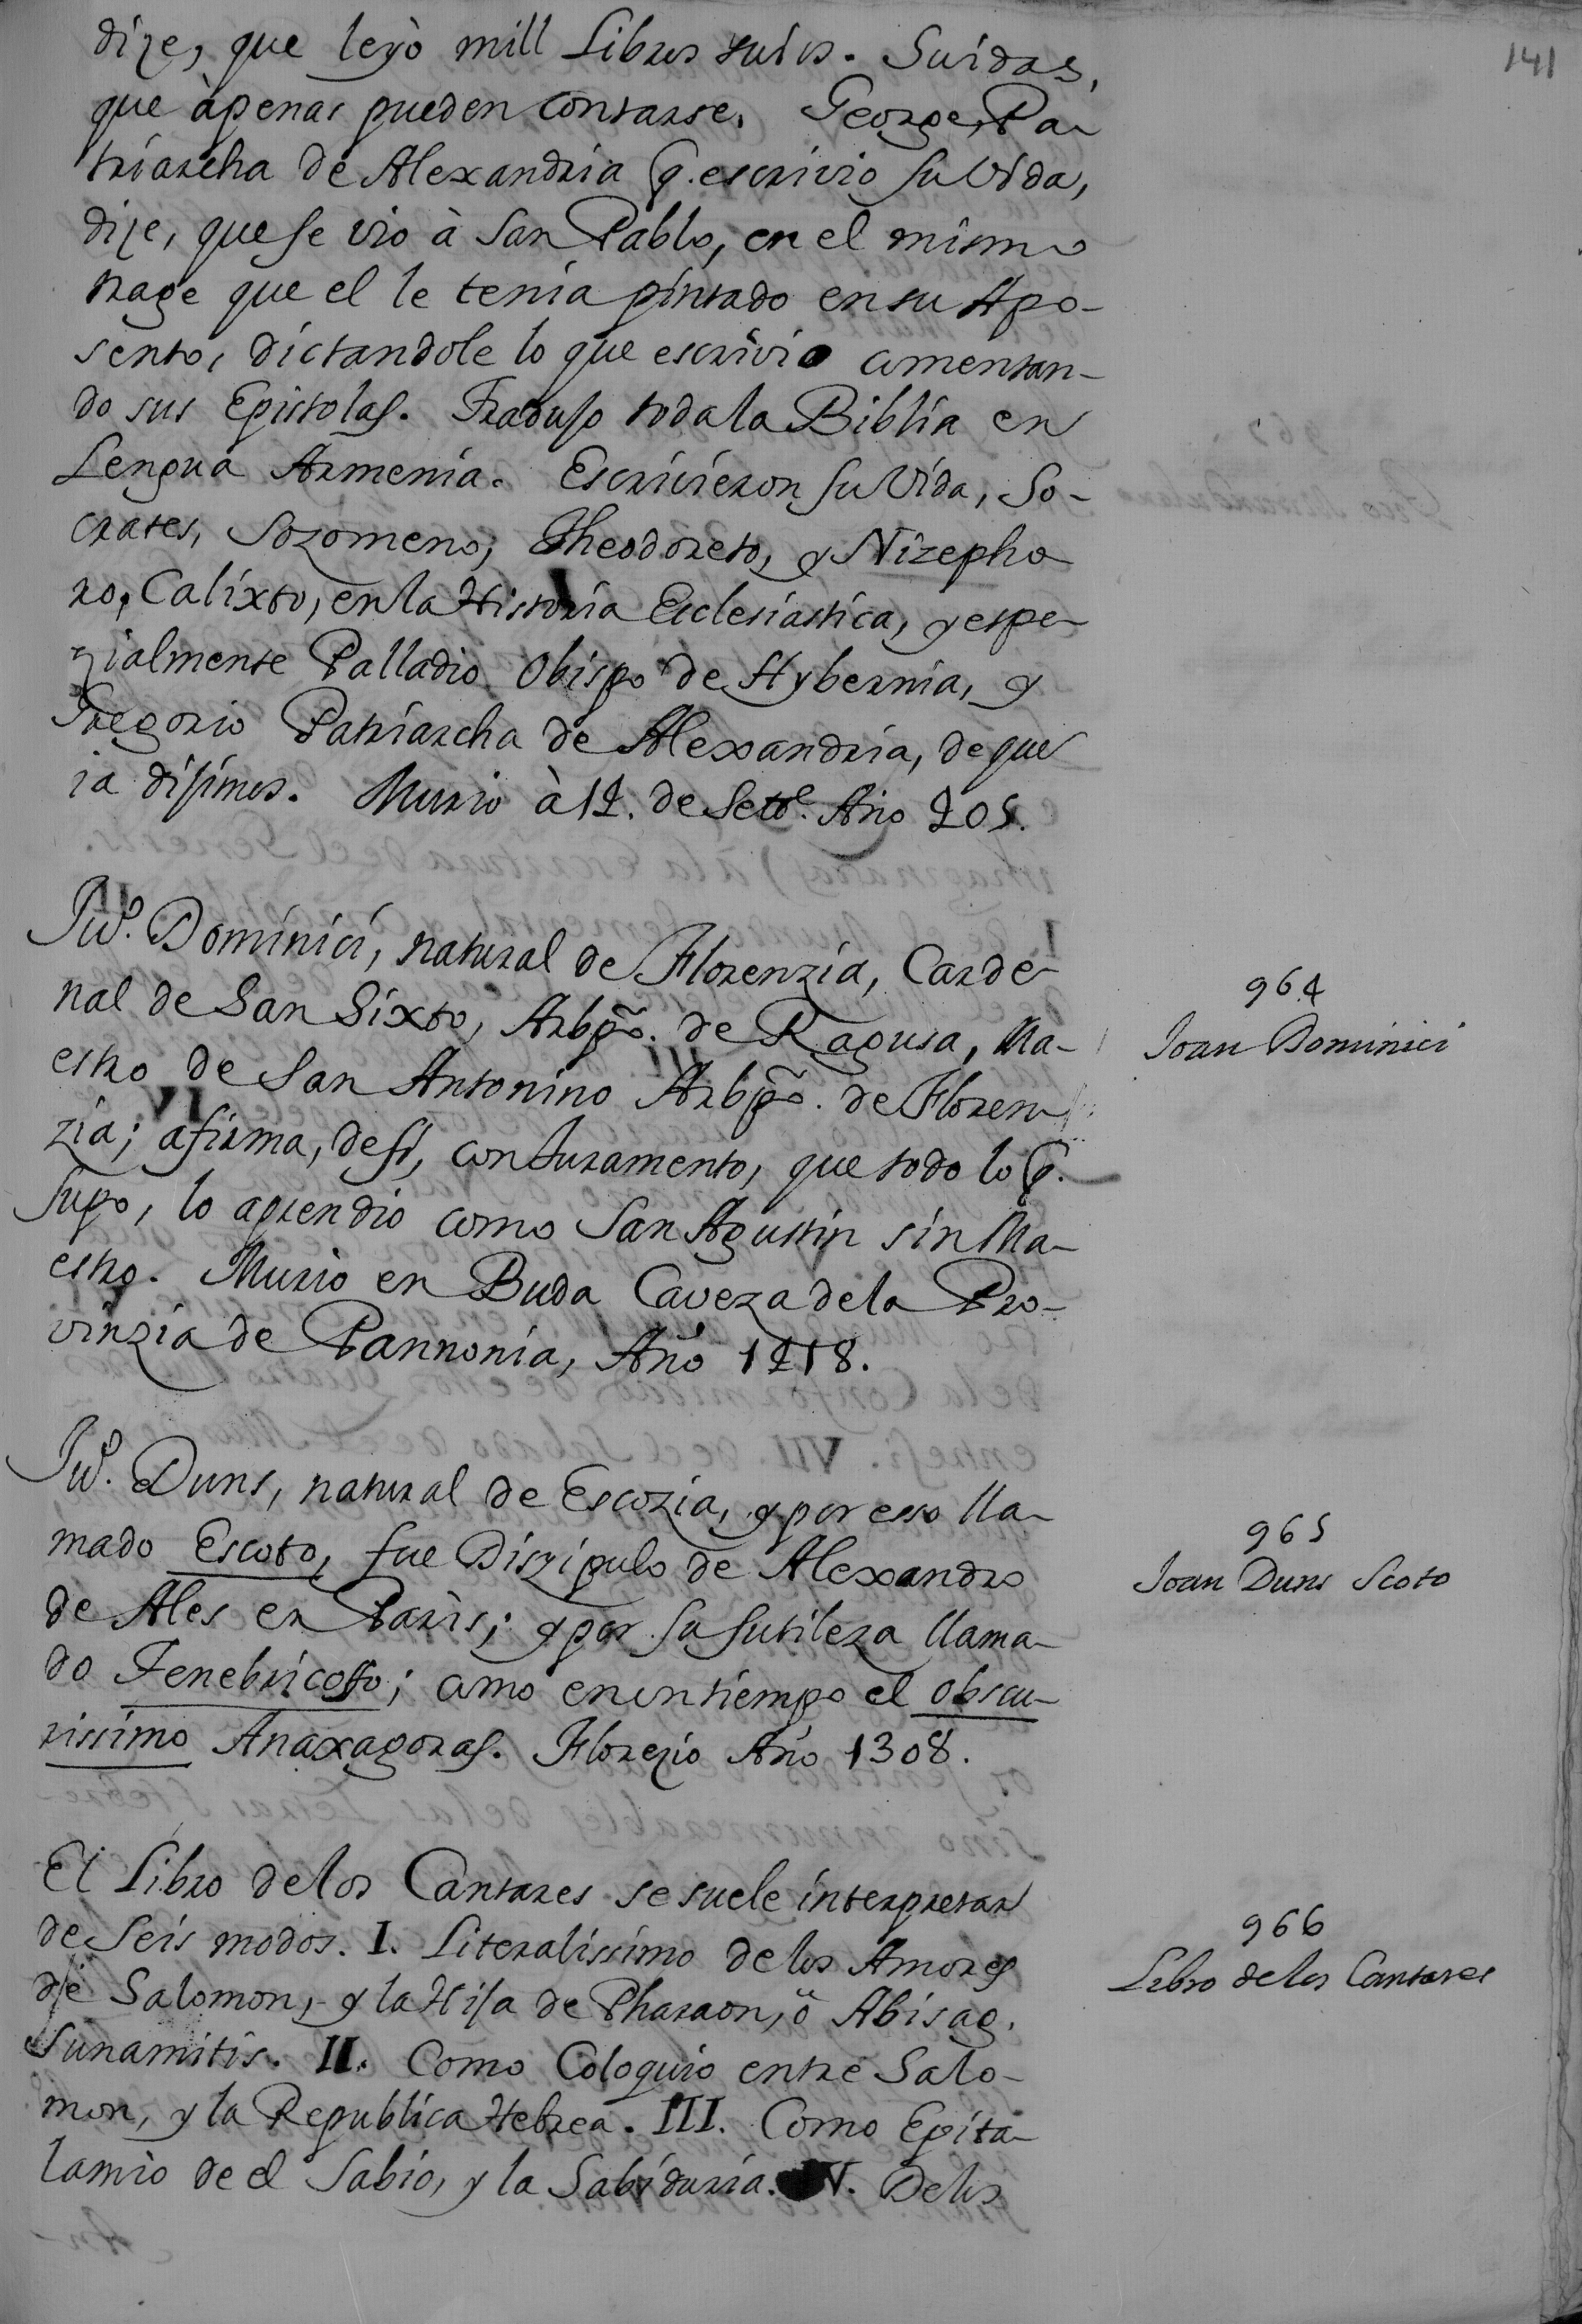 141
dize, que leyò mill Libros suios. Suidas,
que àpenas pueden contarse. George, Pa-
triarcha de Alexandria q. escrivio su Vida,
dize, que se vio à San Pablo, en el mismo
trage que el le tenia pintado en su Apo-
sento, dictandole lo que escrivio comentan-
do sus Epistolas. Tradujo toda la Biblia en
Lengua Armenia. Escrivieron su Vida, So-
crates, Sozomeno, Theodoreto, y Nizepho-
ro, Calixto, en la Historia Eclesiastica, y espe-
zialmente Palladio Obispo de Hybernia, y
Gregorio Patriarcha de Alexandria, de que
ia dijimos. Murio à 14. de Setre. Año 405.
Juo. Dominici, natural de Florenzia, Carde-
nal de San Sixto, Arbpõ. de Ragusa, Ma-
estro de San Antonino Arbpõ. de Floren-
zia; afirma, de si, con Juramento, que todo lo q.
supo, lo aprendio como San Agustin sin Ma-
estro. Murio en Buda Caveza de la Pro-
vinzia de Pannonia, Año 1418.
964
Joan Dominici
Juo. Duns, natural de Escozia, y por esso lla-
mado Escoto, fue Diszipulo de Alexandro
de Ales en Paris; y por su sutileza llama-
do Tenebricosso; como en un tiempo el obscu-
rissimo Anaxagoras. Florezio Año 1308.
965
Joan Duns Scoto
El Libro de los Cantares se suele interpretar
de Seis modos. I. Literalissimo de los Amores
de Salomon, y la Hija de Pharaon, ö Abisag,
Sunamitis. II. Como Coloquio entre Salo-
mon, y la Republica Hebrea. III. Como Epita-
lamio de el Sabio, y la Sabiduria. IV. De los
966
Libro de los Cantares